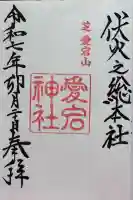 伏火之総本社
芝愛宕山
愛宕神社
令和七年卯月二十日奉拝